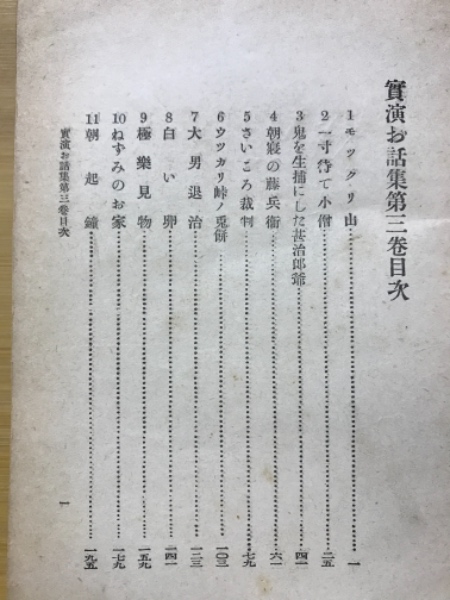 實演お話集第三卷目次
1 モツクリ山 一
2 一寸待て小僧 二五
3 鬼を生捕にした甚治郎爺 四一
4 朝寢の藤兵衞 六一
5 さいころ裁判 七九
6 ウツカリ峠ノ兎餅 一〇三
7 大男退治 一二三
8 白い卵 一四一
9 極樂見物 一五九
10 ねずみのお家 一七九
11 朝起鐘 一九五
實演お話集第三卷目次 一